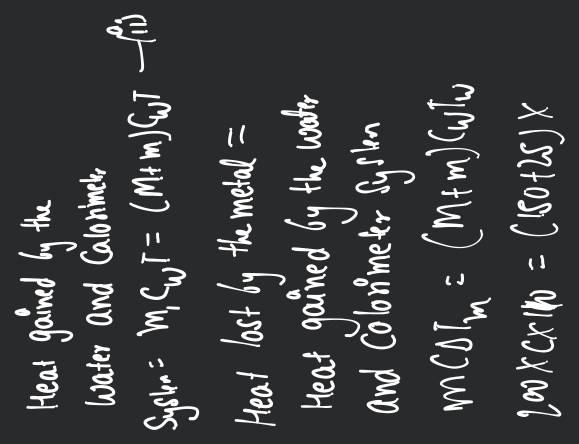 Heat gained by the
Water and Calorimeter
System = m₁CwT = (M+m)CwT —(ii)
Heat lost by the metal =
Heat gained by the water
and Colorimeter System
mCΔTm = (M+m)CwTw
200×C×110 = (150+25)×